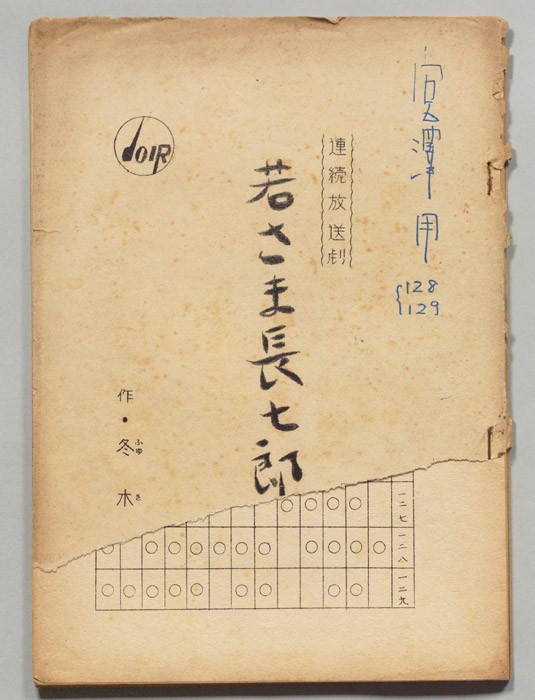 宮澤用
128
129
連続放送劇
若さま長七郎
JOIR
作・冬木
ふゆ
き
一二七
一二八
一二九